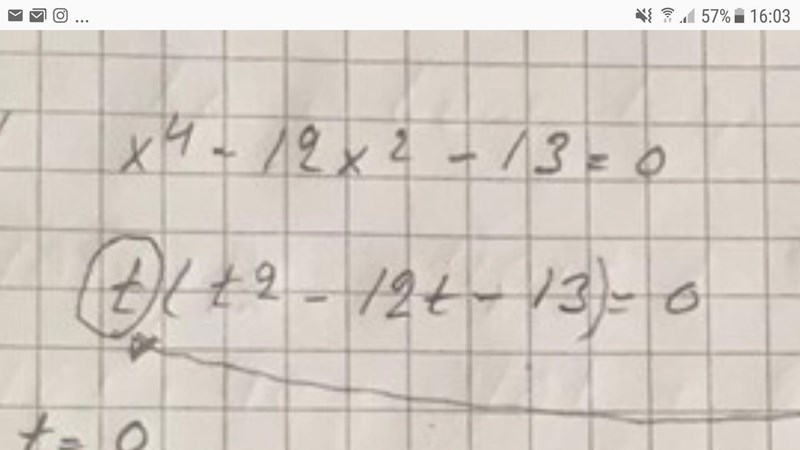 ... 57% 16:03
x⁴ - 12x² - 13 = 0
t(t² - 12t - 13) = 0
t = 0